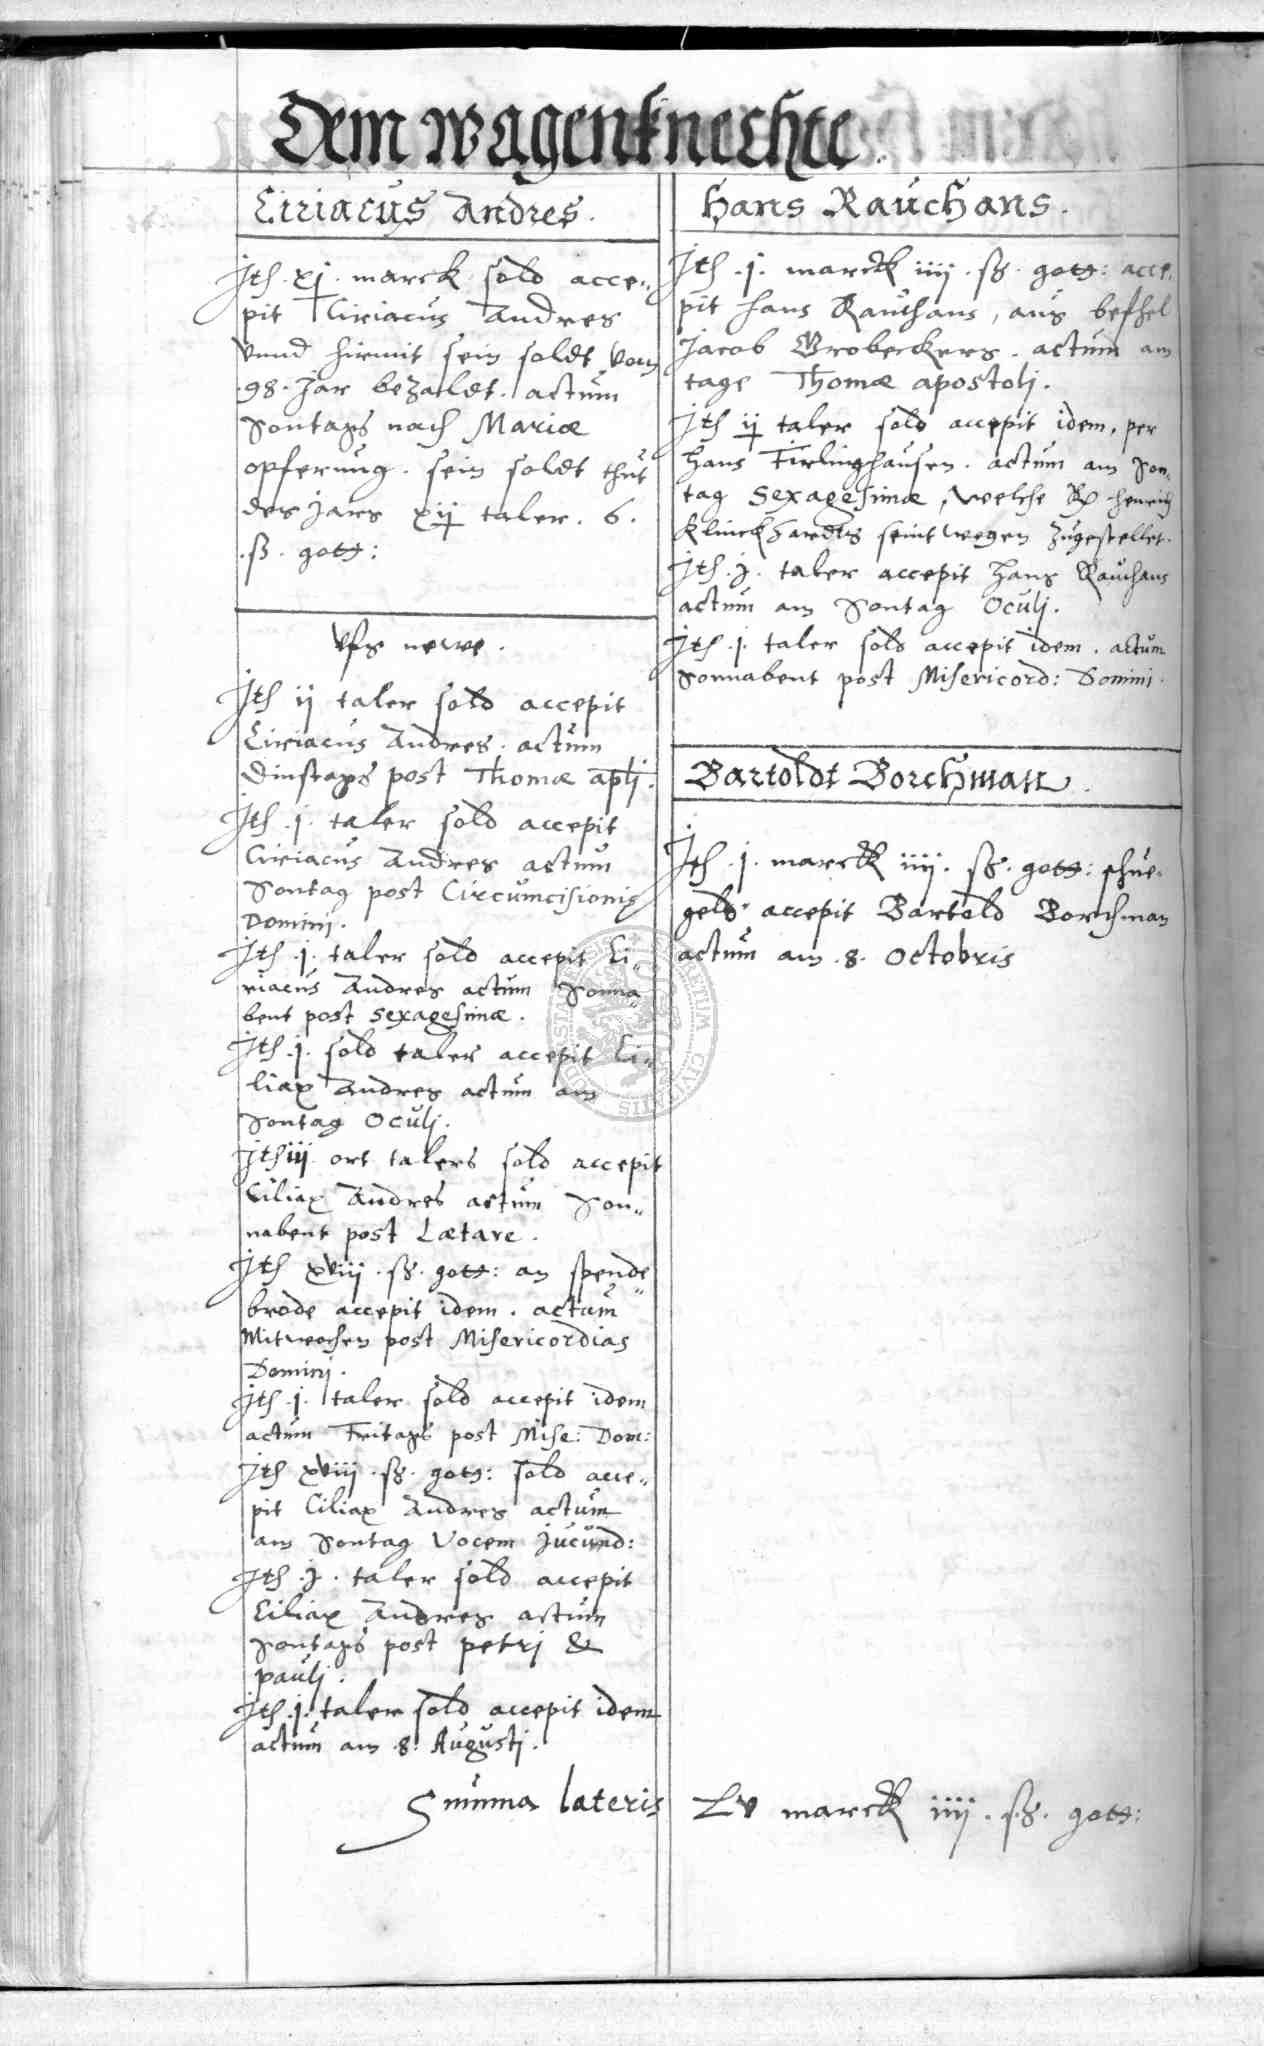 Dem wagenknechte
Ciriacus Andres.
Jth. xj. marck sold acce-
pit Ciriacus Andres
vnnd hirmit sein soldt vom
.98. Jar bezaldt. actum
Sontags nach Mariæ
opferung. sein soldt thut
des Jars xij taler. 6.
.ß. gott:
Vfs newe.
Jth ij taler sold accepit
Ciriacus Andres. actum
Dinstags post Thomæ aplj.
Jth .j. taler sold accepit
Ciriacus Andres actum
Sontag post Circumcisionis
Dominj.
Jth .j. taler sold accepit Ci-
riacus Andres actum Sonna-
bent post Sexagesimæ.
Jth .j. sold taler accepit Ci-
liax Andres actum am
Sontag Oculj.
Jth iij ort talers sold accepit
Ciliax Andres actum Son-
nabent post Lætare.
Jth xviij .ß. gott: an spende
brode accepit idem. actum
Mitwochen post Misericordias
Dominj.
Jth .j. taler sold accepit idem
actum Fritags post Mise: Dom:
Jth xviij .ß. gott: sold acce-
pit Ciliax Andres actum
am Sontag Vocem Jucund:
Jth .j. taler sold accepit
Ciliax Andres actum
Sontags post petrj &
paulj.
Jth .j. taler sold accepit idem
actum am .8. Augustj.
Hans Rauchans.
Jth .j. marck iiij .ß. gott: acce-
pit Hans Rauchans, aus befhel
Jacob Brobeckers. actum am
tage Thomæ apostolj.
Jth ij taler sold accepit idem, per
Hans Tirlinghausen. actum am Son-
tag Sexagesimæ, welche henrich
Klinckhardts seint wegen zugestellet.
Jth .j. taler accepit Hans Rauchans
actum am Sontag Oculj.
Jth .j. taler sold accepit idem. actum
Sonnabent post Misericord: Domini.
Bartoldt Borchman.
Jth .j. marck iiij. ß. gott: schue-
geld accepit Bartold Borchman
actum am .8. Octobris
Summa lateris Lv marck iiij .ß. gott: